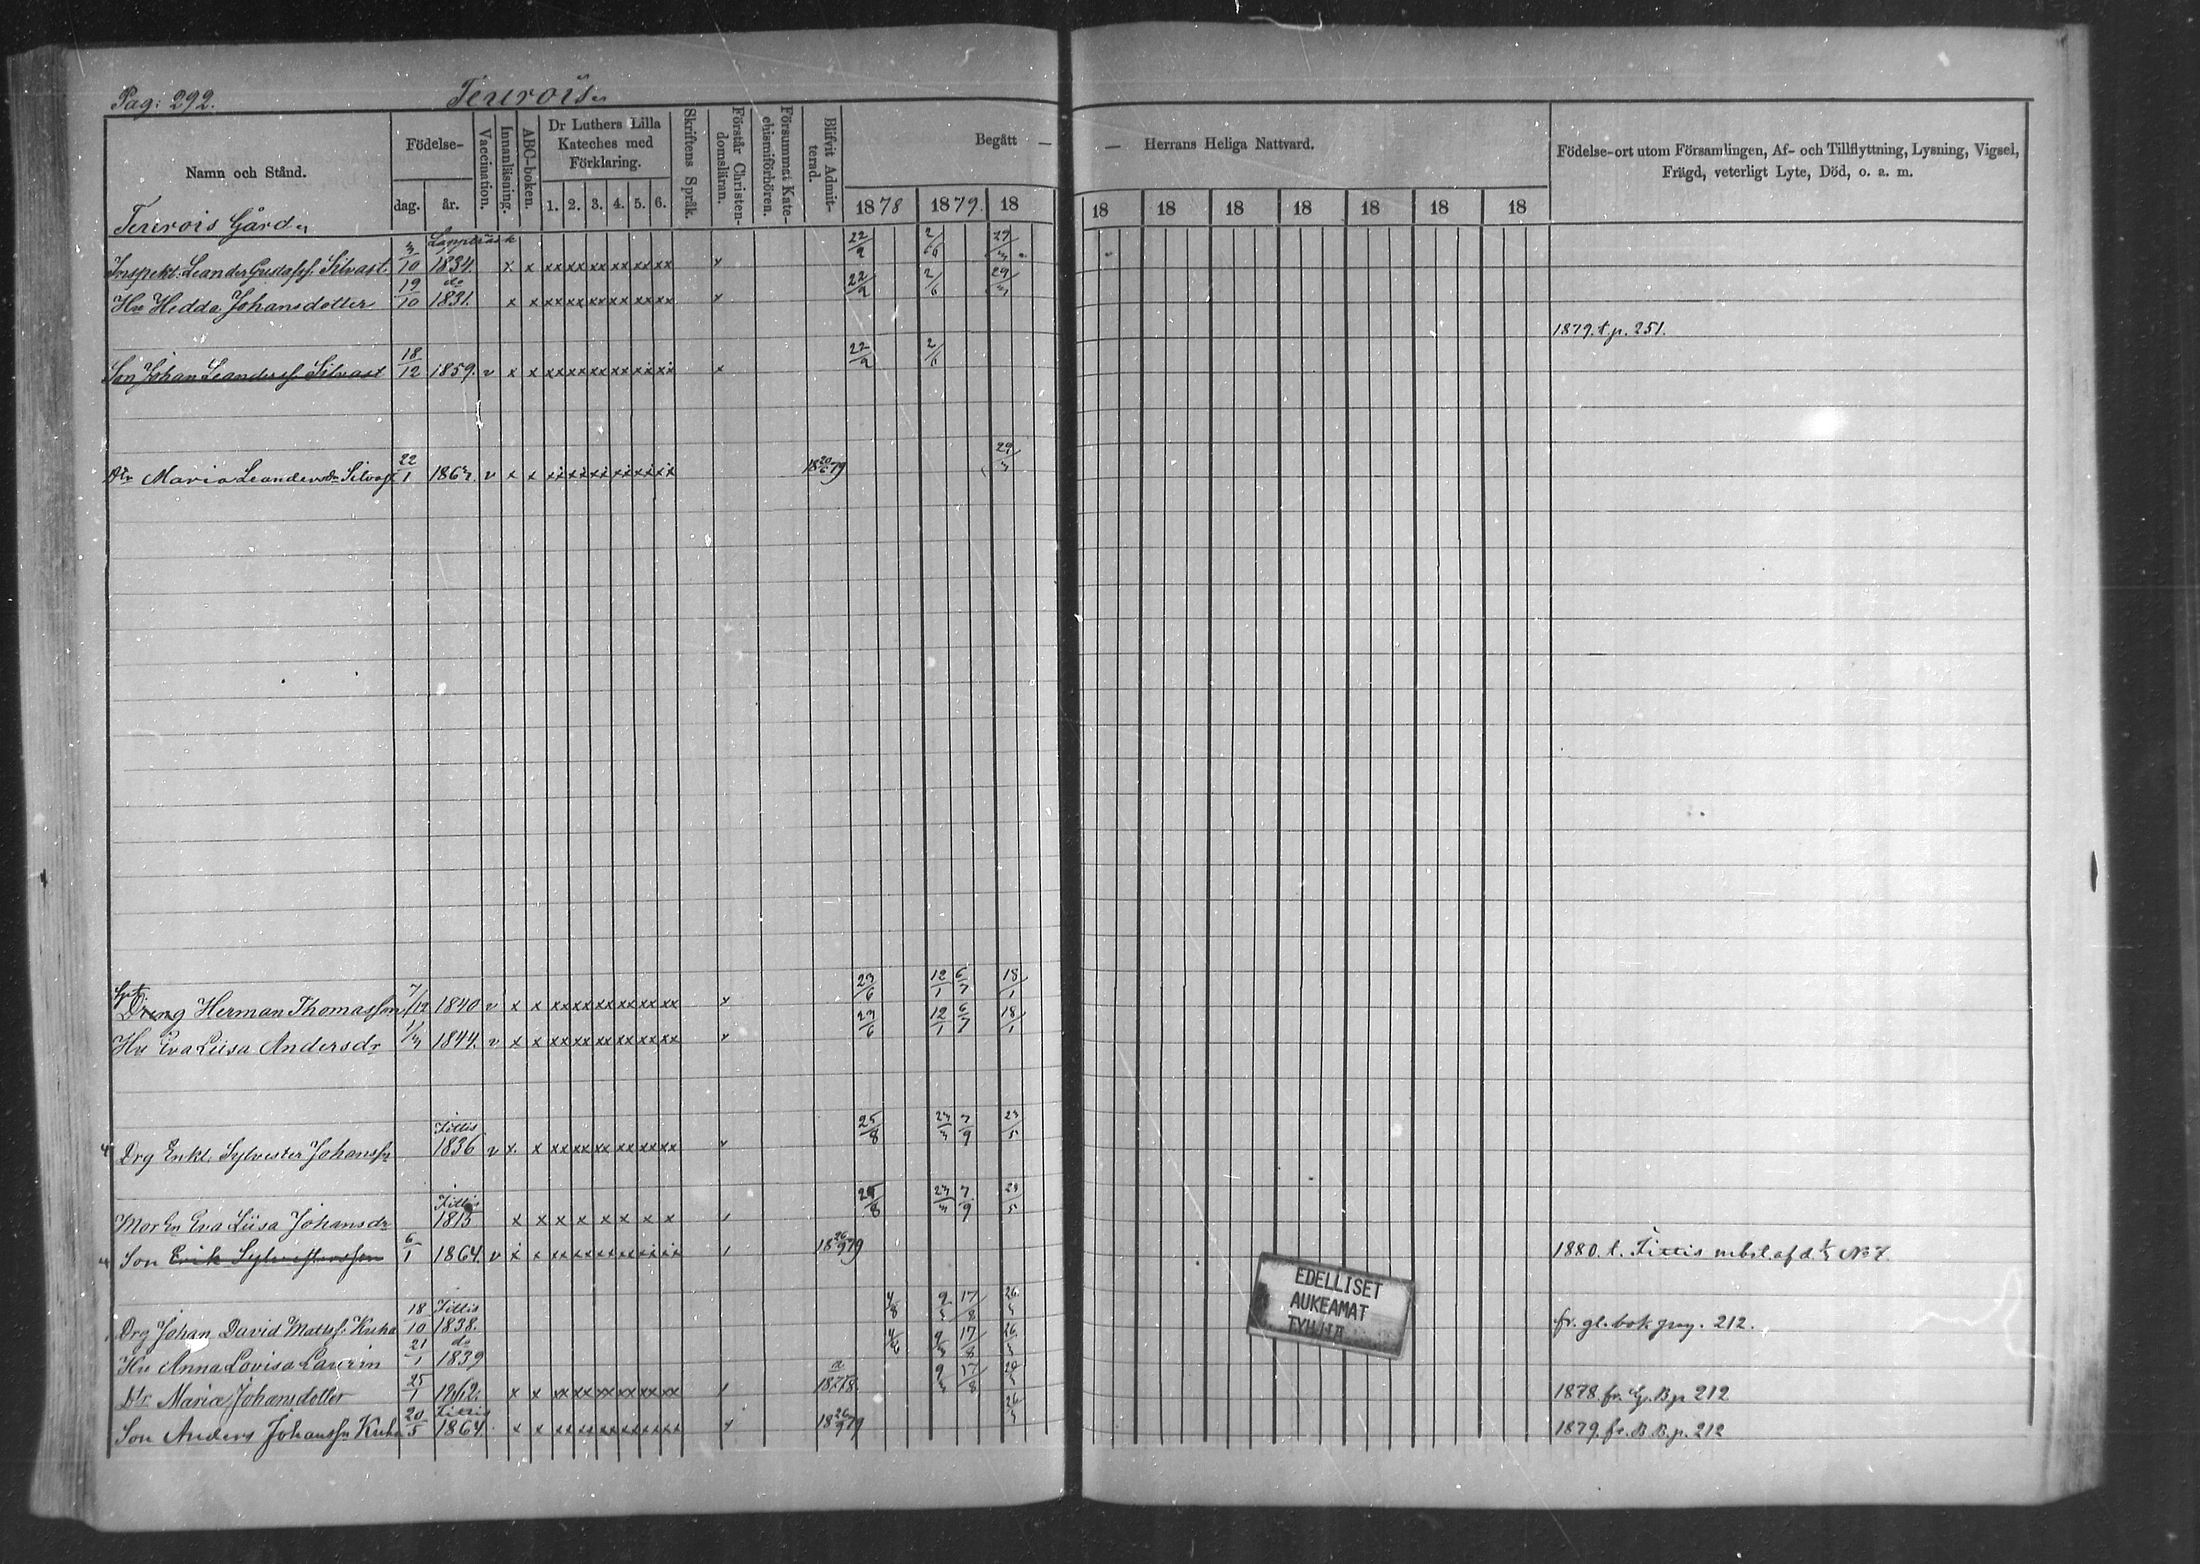 Pag: 292. Terrvois
Namn och Stånd. Födelse- dag. år. Vaccination. Innanläsning. ABC-boken. Dr Luthers Lilla Kateches med Förklaring. 1. 2. 3. 4. 5. 6. Skriftens Språk. Förstår Christendomsläran. Försummat Katechismiförhören. Blifvit Admitterad. Begått — — Herrans Heliga Nattvard. Födelse-ort utom Församlingen, Af- och Tillflyttning, Lysning, Vigsel, Frägd, veterligt Lyte, Död, o. a. m.
1878 1879. 18 18 18 18 18 18 18 18
Terrvois Gård
Inspekt. Leander Gustafss. Silvast 3/10 Lappträsk 1834. x x xx xx xx xx xx xx x 22/9 2/6 29/3
Hu Hedda Johansdotter 19/10 do 1831. x x xx xx xx xx xx xx x 22/9 2/6 29/3
1879. t. p. 251.
Son Johan Leandersf. Silvast 18/12 1859. v x x xx xx xx xx xx xx x 22/9 2/6
Dtr Maria Leandersdr Silvast 22/1 v x x 18 20/6 79 29/3
Dreng Herman Thomasson 7/12 1840 v x x xx xx xx xx xx xx x 23/6 12/1 6/7 18/1
Hu Eva Liisa Andersdr 1/3 1844. v x x xx xx xx xx xx xx x 23/6 12/1 6/7 18/1
Drg Enkl. Sylvester Johanssn Iittis 1836 v x x xx xx xx xx xx xx x 25/8 23/3 7/9 23/5
Mor En Eva Liisa Johansdr Iittis 1815 x x x x x x x x 25/8 23/3 7/9 23/5
Son Erik Sylvestersson 6/1 1864. v x x 18 26/9 79 1880. t. Iittis mbst. af d. No 7.
Drg Johan David Mattsf. Kuha 18/10 Iittis 1838. 4/8 9/3 17/8 26/3 fr. gl. bok pag. 212.
Hu Anna Lovisa Laurin 21/1 do 1839 9/3 17/8 26/3
Dtr Maria Johansdotter 25/1 1862. x x xx xx xx xx xx xx 1878 9/3 17/8 1878. fr. G. B. p 212
Son Anders Johanssn Kuha 20/5 Iittis 1864. x x xx xx xx xx xx xx 18 26/9 79 26/3 1879. fr. B. B. p. 212
EDELLISET
AUKEAMAT
TYHJIÄ